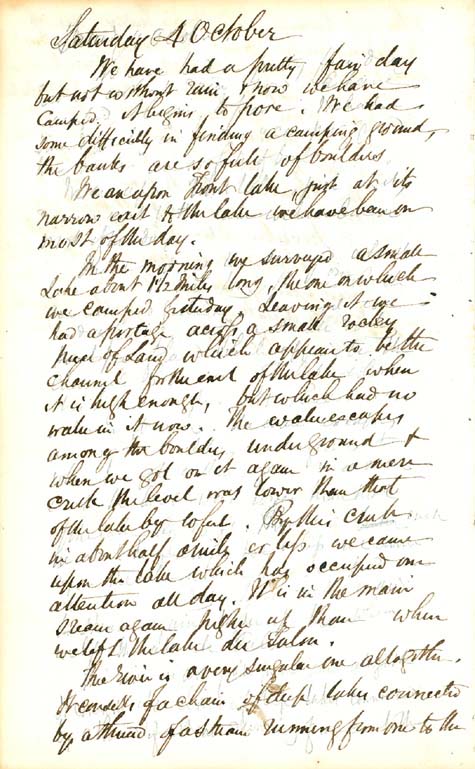 Saturday 4 October
We have had a pretty fair day
but not without rain & now we have
camped it begins to pore. We had
some difficulty in finding a camping ground,
the banks are so full of boulders
We are upon Trout lake, just at its
narrow exit to the lake we have been on
most of the day.
In the morning we surveyed a small
Lake about 1 1/2 miles long, the one on which
we camped yesterday. Leaving it we
had a portage across a small rocky
piece of land which appears to be the
channel for the exit of the lake when
it is high enough, but which had no
water in it now. The water escapes
among the boulders underground &
when we got on it again in a mere
creek the level was lower than that
of the lake by 10 feet. By this creek
in about half a mile or less we came
upon the lake which has occupied our
attention all day. It is in the main
stream again higher up than when
we left the lake du Salon.
The river is a very singular one altogether.
It consists of a chain of deep lakes connected
by a thread of a stream running from one to the